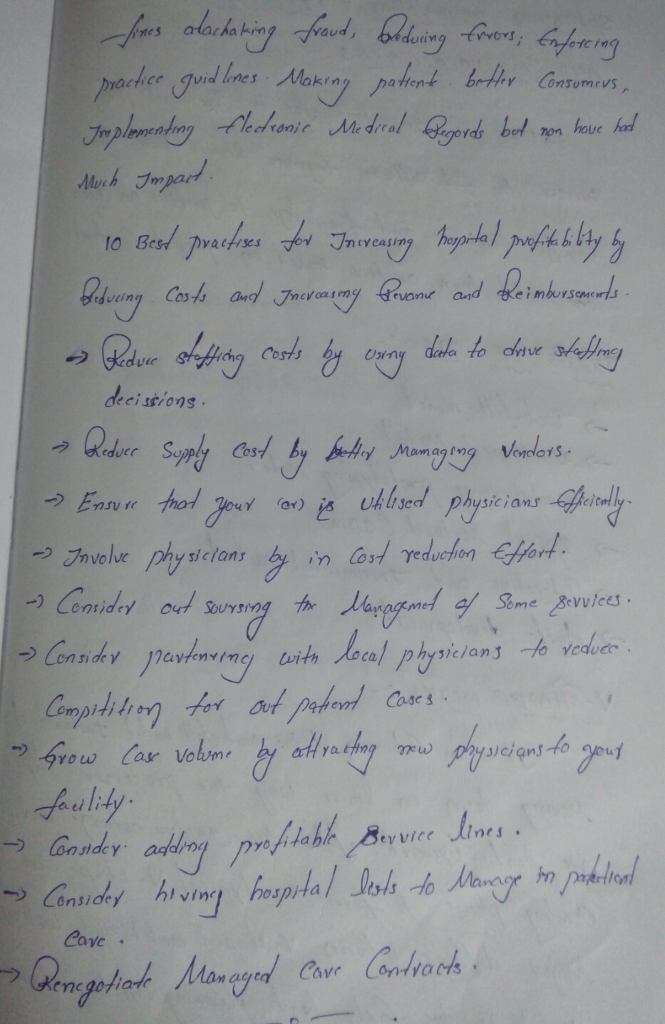 fines alachaking fraud, Reducing Errors; Enforcing
practice guidlines. Making patient better Consumers,
Implementing Electronic Medical Regords but non have had
Much Impact.
10 Best practises for Increasing hospital profitability by
Reducing Costs and Increasing Revanue and Reimbursements.
→ Reduce staffing costs by using data to drive staffing
decissions.
→ Reducer Supply Cost by better Mamaging Vendors.
→ Ensure that your (or) is Utilised physicians Efficiently.
→ Involve physicians by in Cost reduction Effort.
→ Consider out soursing the Managemet of Some Services.
→ Consider partenreng with local physicians to reduce.
Compitition for out patient Cases.
→ Grow Case volume by attracting new physicians to your
facility.
→ Consider adding profitable Service lines.
→ Consider hiving hospital lests to Manage in patient
Care.
→ Renegotiate Managed Care Contracts.